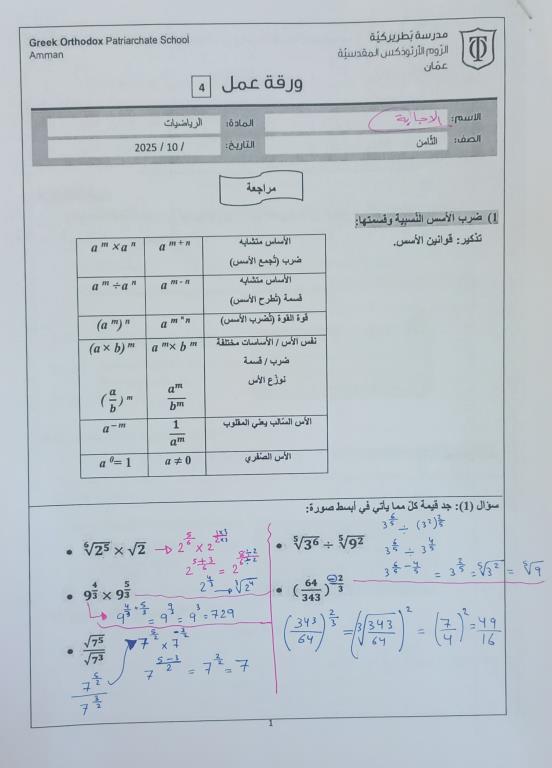 Greek Orthodox Patriarchate School
Amman
مدرسة بطريركيّة
الرّوم الأرثوذكس المقدسيّة
عمّان
ورقة عمل 4
الاسم: الاجابة
المادة: الرياضيات
الصف: الثّامن
التاريخ: / 10 / 2025
مراجعة
1) ضرب الأسس النّسبية وقسمتها:
تذكير: قوانين الأسس.
a^m × a^n | a^(m+n) | الأساس متشابه ضرب (تُجمع الأسس)
a^m ÷ a^n | a^(m-n) | الأساس متشابه قسمة (تُطرح الأسس)
(a^m)^n | a^(m*n) | قوة القوة (تُضرب الأسس)
(a × b)^m | a^m × b^m | نفس الأس / الأساسات مختلفة
ضرب / قسمة
(a/b)^m | a^m/b^m | نوزّع الأس
a^(-m) | 1/a^m | الأس السّالب يعني المقلوب
a^0 = 1 | a ≠ 0 | الأس الصّفري
سؤال (1): جد قيمة كلّ مما يأتي في أبسط صورة:
• ⁶√2⁵ × √2 → 2^(5/6) × 2^(1×3/2×3)
2^((5+3)/6) = 2^(8÷2/6÷2)
2^(4/3) → ³√2⁴
• 9^(4/3) × 9^(5/3)
9^(4/3+5/3) = 9^(9/3) = 9³ = 729
• √7⁵/√7³
7^(5/2)/7^(3/2)
7^(5/2) × 7^(-3/2)
7^((5-3)/2) = 7^(2/2) = 7
• ⁵√3⁶ ÷ ⁵√9²
3^(6/5) ÷ (3²)^(2/5)
3^(6/5) ÷ 3^(4/5)
3^(6/5-4/5) = 3^(2/5) = ⁵√3² = ⁵√9
• (64/343)^(-2/3)
(343/64)^(2/3) = (³√(343/64))² = (7/4)² = 49/16
1